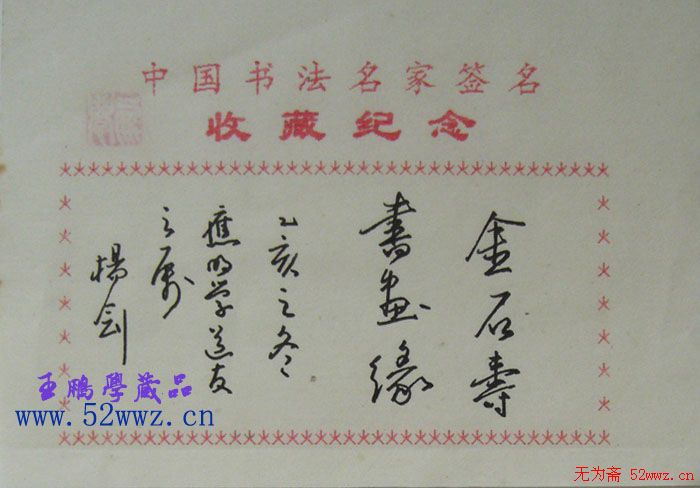 中国书法名家签名
收藏纪念
金石壽
書画緣
乙亥之冬
學道友
之属
楊剑
王鵬學蔵品
www.52wwz.cn
无为斋 52wwz.cn